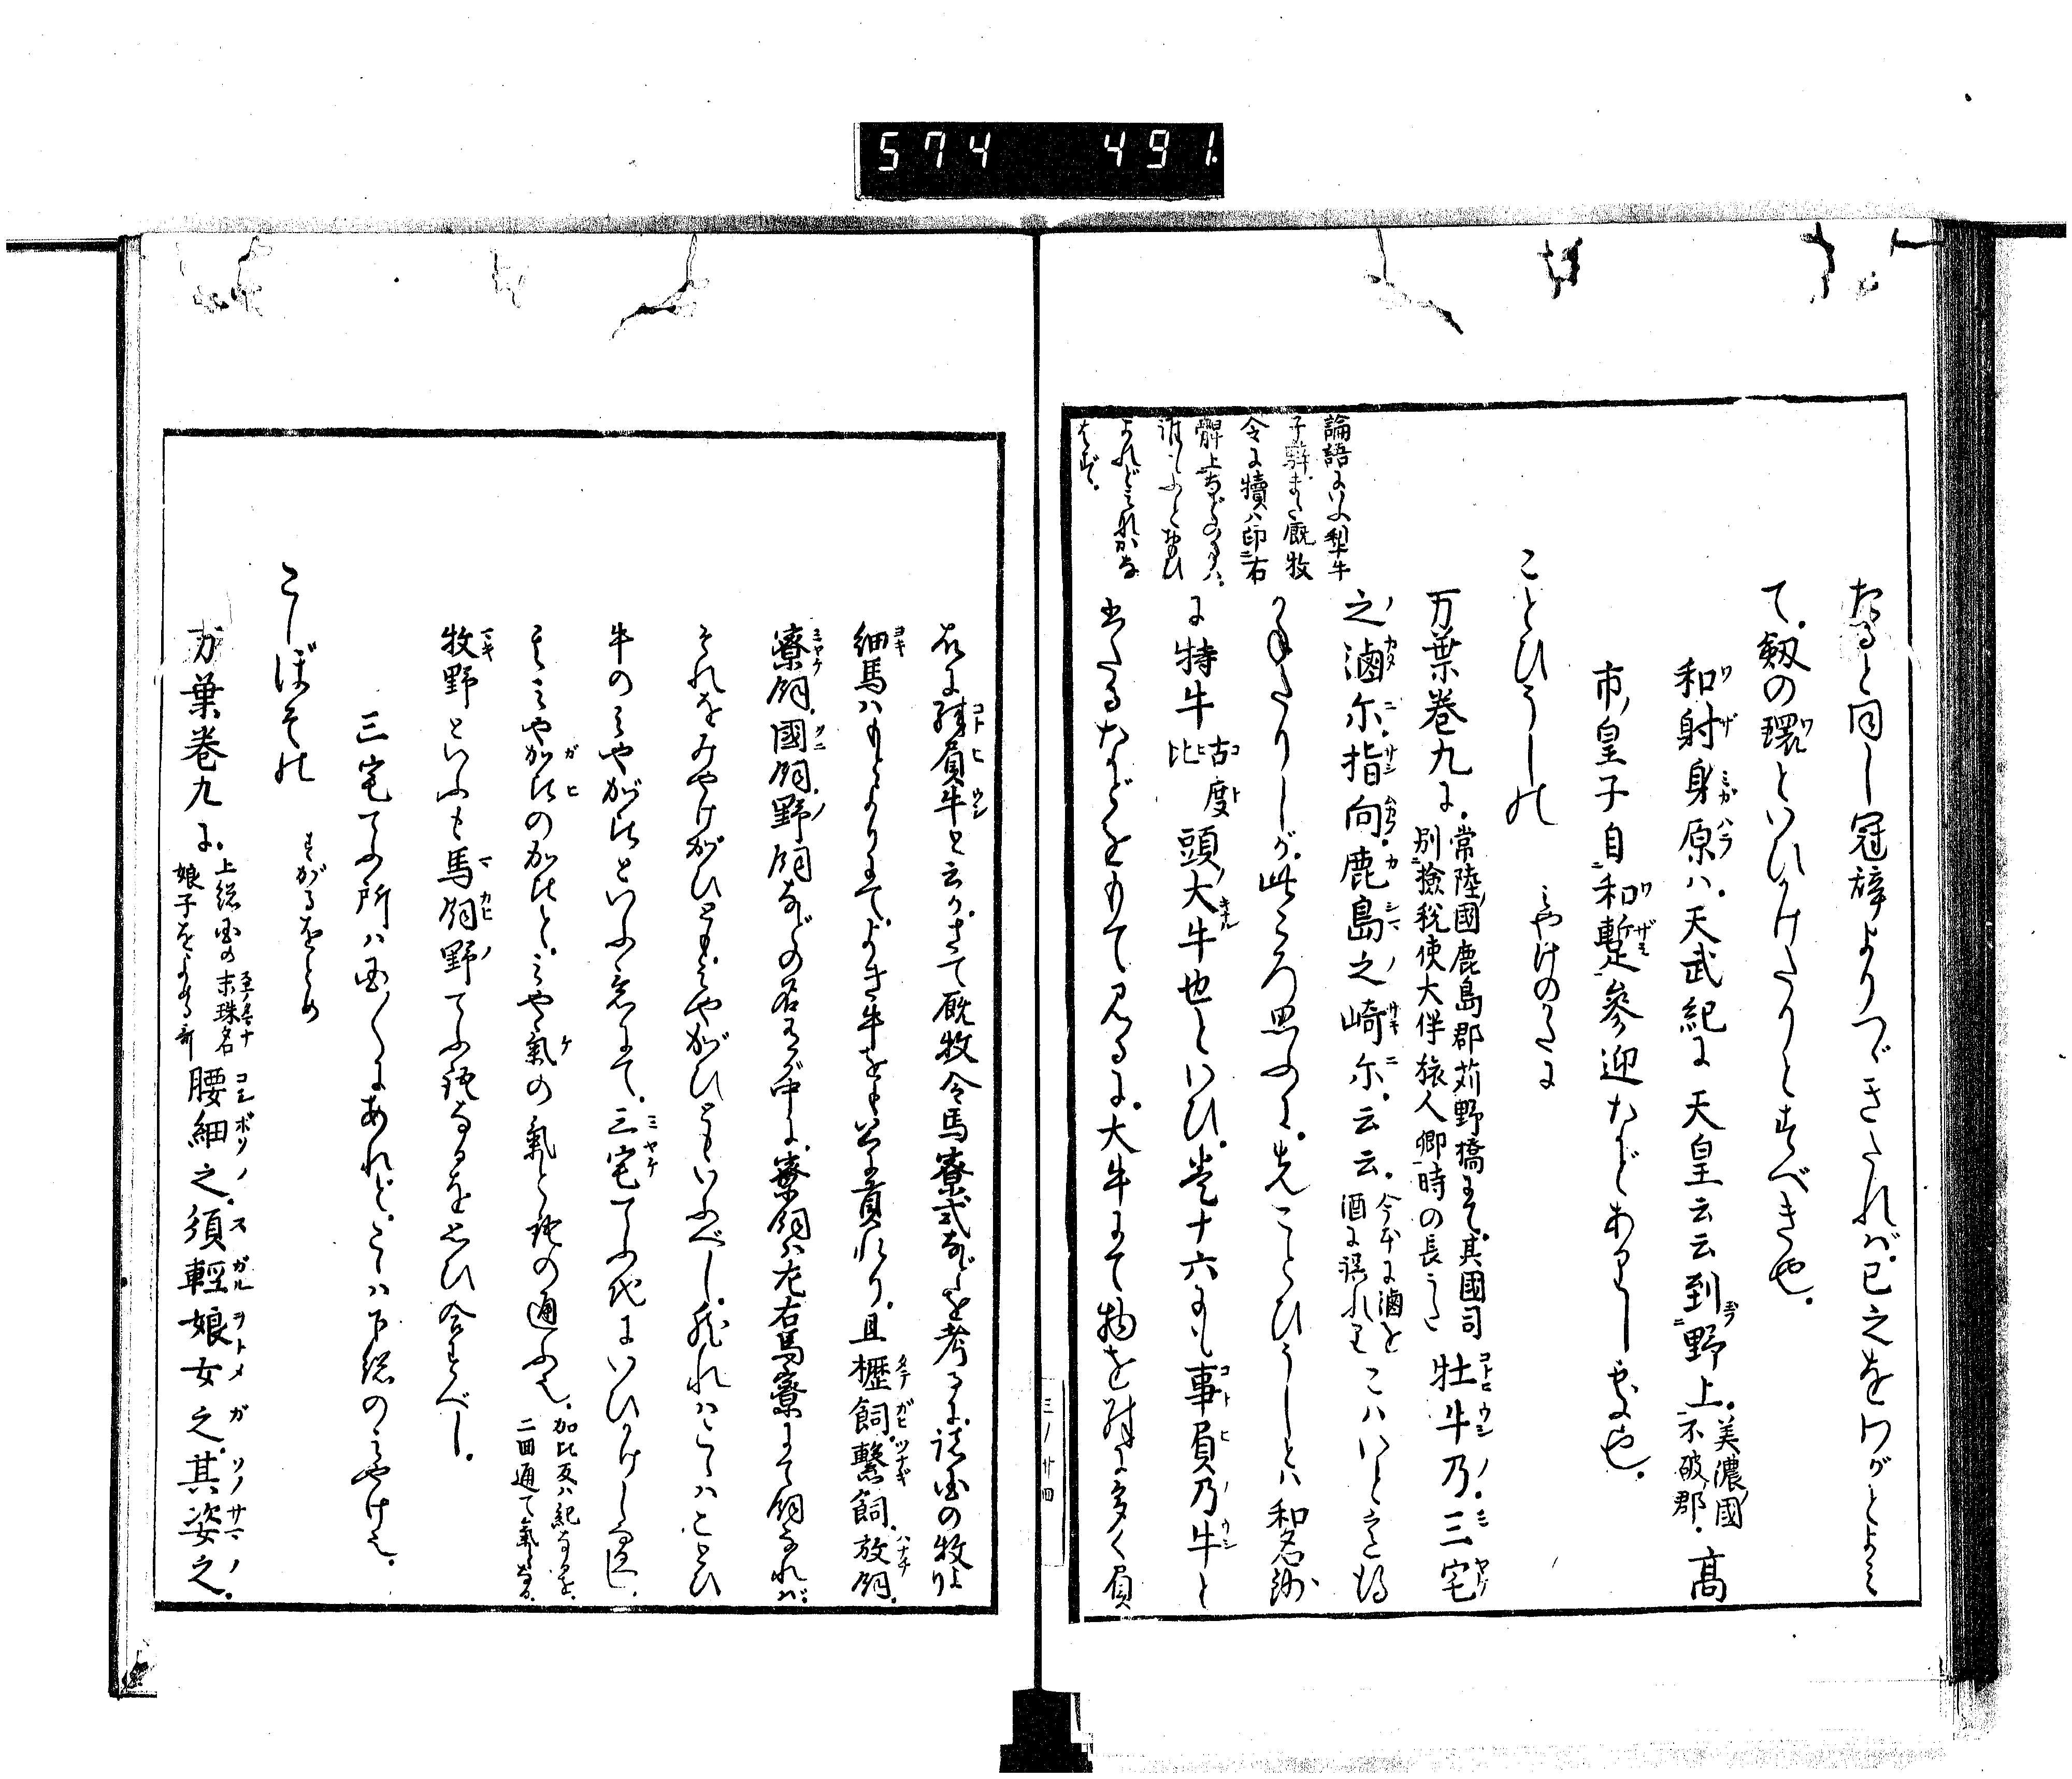 574 491
なると同し冠辞よりつゞきたれば已之をわがとよみ
て劔の環といひかけたりとすべきや
和射見身原ハ天武紀に天皇云云到野上美濃國不破郡高
市皇子自和蹔參迎などありし處也
ことひうしの みやけのかたに
万葉巻九に常陸國鹿島郡苅野橋にて其國司別檢税使大伴旅人卿時の長うた牡牛乃三宅
之滷尓指向鹿島之崎尓云云今本に滷を酒に誤れりこハいと意得
かねたりしが此ころ思ふに先ことひうしとハ和名抄
に特牛古度比頭大牛也といひ巻十六にも事負乃牛と
出たるなどをもて見るに大牛にて物を殊に多く負
論語にいふ犂牛
子騂また厩牧
令に犢ハ印右
髀上などの
よれど
三ノ廿四
故に殊負牛と云かさて厩牧令馬寮式などを考るに諸国の牧より
細馬ハもとよりにてよき牛をも公に貢れり且櫪飼繫飼放飼
寮飼國飼野飼などの名有が中に寮飼ハ左右馬寮にて飼なれバ
それをみやけがひともみやがひともいふべし然れハこゝハことひ
牛のみやがひといふ意にて三宅てふ地にいひかけし也
そのみやがひのがひとみや氣の氣と語の通ふ也加比反ハ紀なるを二回通て氣となる
牧野といふも馬飼野てふ語なるを思ひ合すべし
三宅てふ所ハ国々にあれどこゝハ下総のみやけ也
こしぼその すがるをとめ
万葉巻九に上総国の末珠名娘子をよめる哥腰細之須輕娘女之其姿之